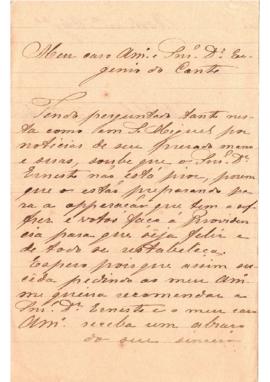 Meu caro Am.º e Snr. Dr. Eu-
genio do Canto
Tendo perguntado tanto nes-
ta como em S. Miguel por
noticias de seu presado mano
e suas, soube que o Snr. Dr.
Ernesto não está pior, porem
que o estão preparando pa-
ra a operação que tem a sof-
frer e votos faço á Providen-
cia para que seja feliz e
de todo se restabeleça.
Espero pois que assim suc-
ceda pedindo ao meu Am.º
me queira recomendar a
Snr. Dr. Ernesto e o meu caro
Am.º receba um abraço
do seu sincero